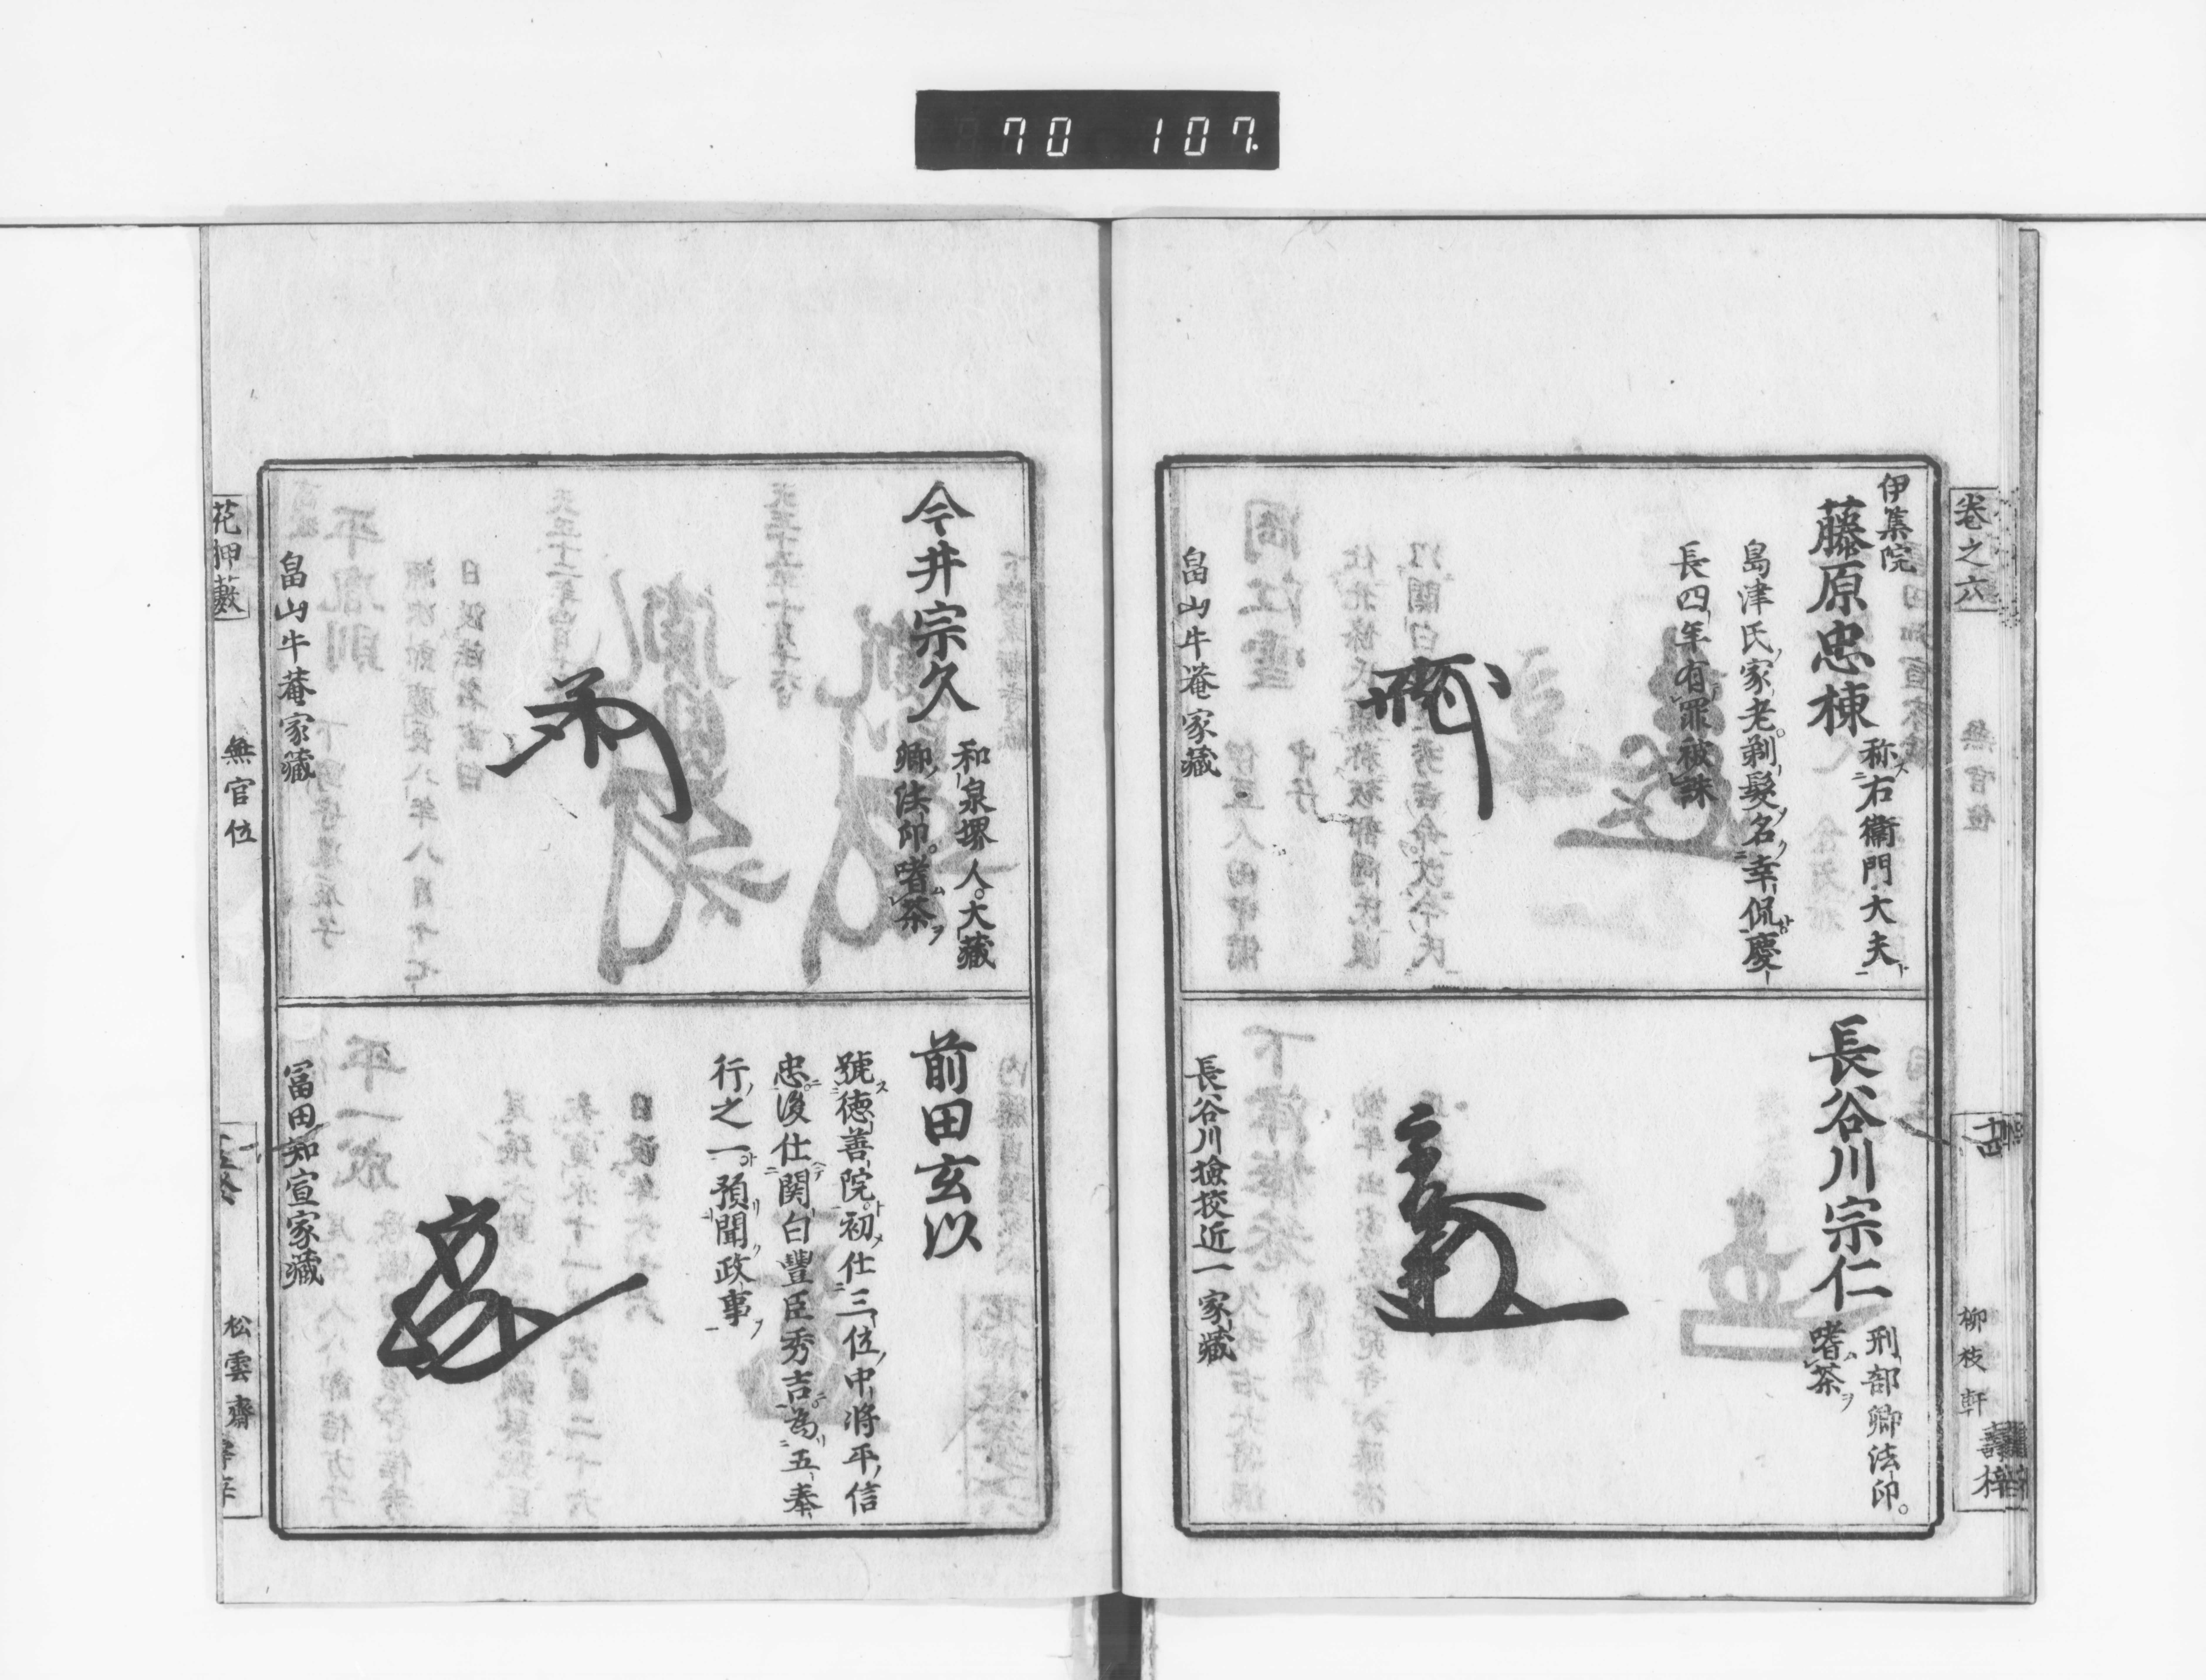 70 107.
卷之六
無官位
柳枝軒
伊集院
藤原忠棟
称右衛門大夫
島津氏家老。剃髮名幸侃慶
長四年有罪被誅
畠山牛菴家藏
長谷川宗仁
刑部卿法印。
嗜茶
長谷川撿挍近一家藏
今井宗久
和泉堺人。大藏
卿法印。嗜茶
畠山牛菴家藏
前田玄以
號徳善院。初仕三位中將平信
忠。後仕関白豐臣秀吉。為五奉
行之一。預聞政事
冨田知宣家藏
花押藪
無官位
松雲齋